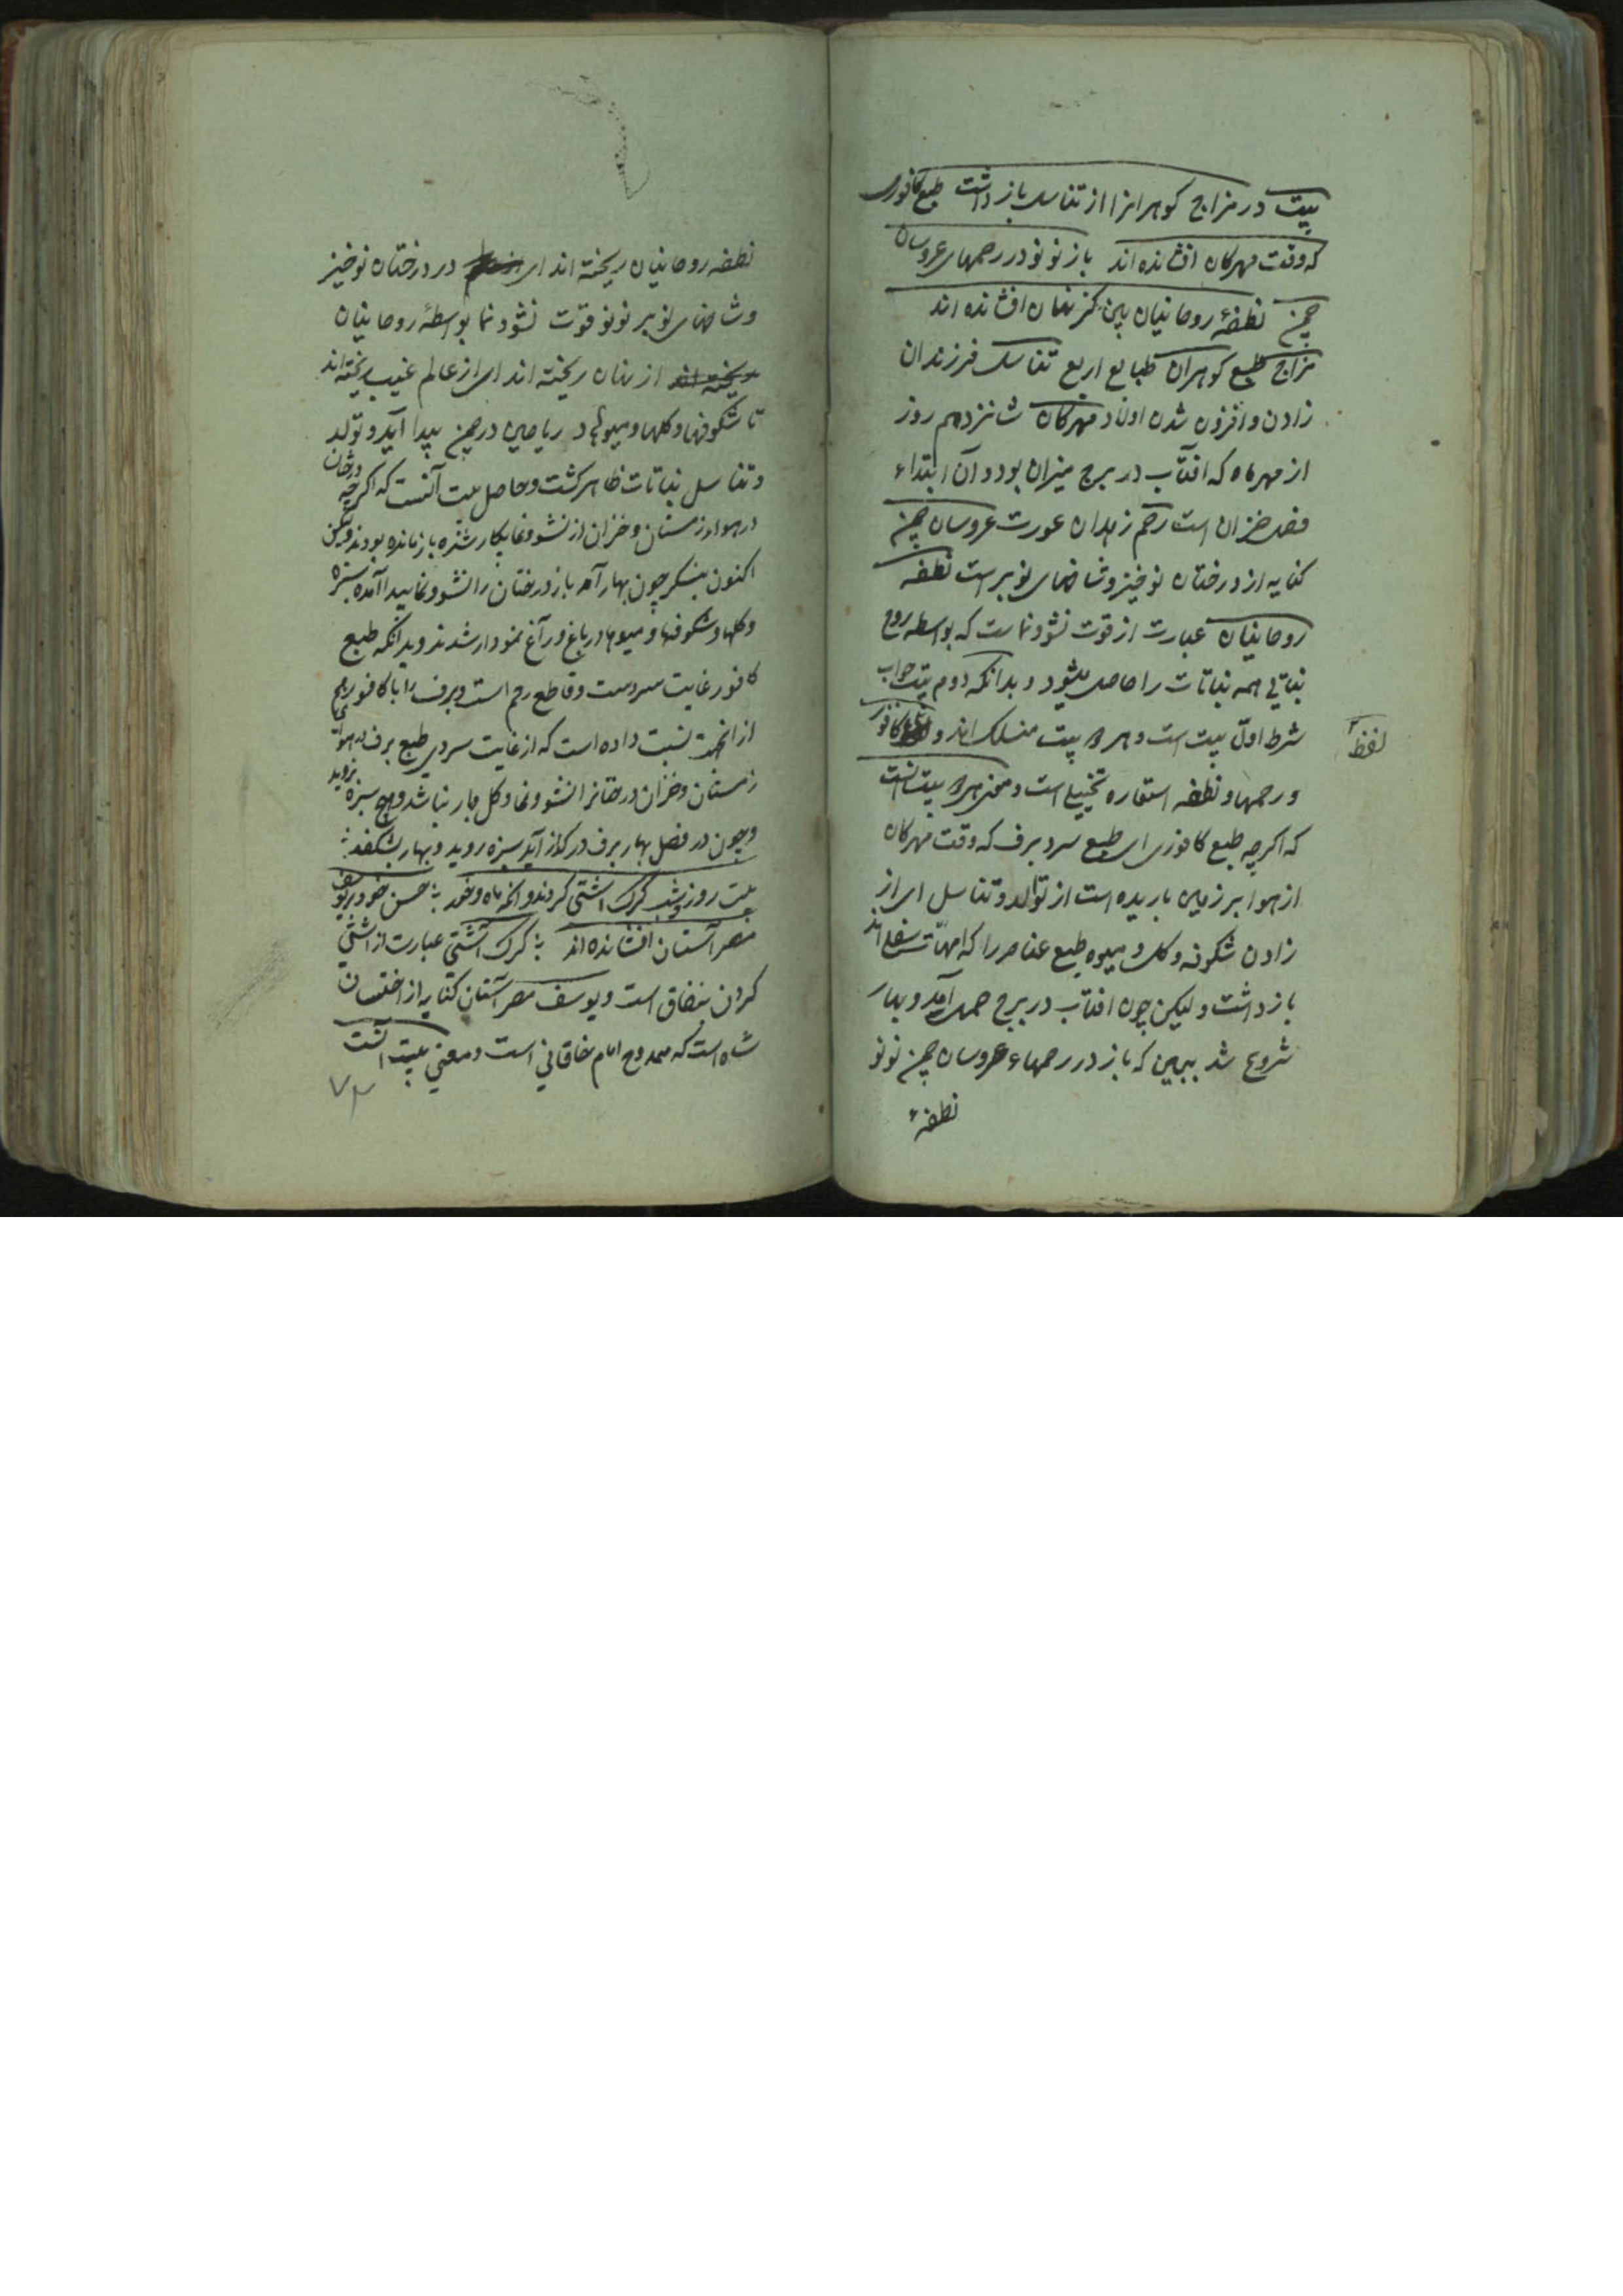 بیت در مزاج کوهرانرا از تناسل باز داشت طبع کافوری
که وقت مهرکان افشانده اند باز نو نو در رحمهای عروسان
چمن نطفهٔ روحانیان بین کز نهان افشانده اند
مزاج طبع کوهران طبایع اربع تناسل فرزندان
زادن و افزون شدن اولاد مهرکان شانزدهم روز
از مهرماه که افتاب در برج میزان بود و آن ابتداء
فصل خزان است رحم زهدان عورت عروسان چمن
کنایه از درختان نوخیز و شاخهای نوبر است نطفه
روحانیان عبارت از قوت نشو و نماست که بواسطه روح
نباتی همه نباتات را حاصل میشود و بدانکه دوم بیت جواب
شرط اول بیت است و هر دو بیت منسلک اند و کافور
لفظ
و رحمها و نطفه استعاره تخییلی است و معنی هر دو بیت آنست
که اکرچه طبع کافوری ای طبع سرد برف که وقت مهرکان
از هوا بر زمین باریده است از توالد و تناسل ای از
زادن شکوفه و کل و میوه طبع عناصر را که امهات سفلی اند
باز داشت و لیکن چون افتاب در برج حمل آمد و بهار
شروع شد ببین که باز در رحمهاء عروسان چمن نو نو
نطفهء
نطفه روحانیان ریخته اند ای در درختان نوخیز
و شاخهای نوبر نو نو قوت نشو و نما بواسطهٔ روحانیان
ریخته اند از نهان ریخته اند ای از عالم غیب ریخته اند
تا شکوفها و کلها و میوها و ریاحین در چمن پیدا آید و تولد
و تناسل نباتات ظاهر کشت و حاصل بیت آنست که اکرچه درختان
در هواء زمستان و خزان از نشو و نما بیکار شده باز مانده بودند ولیکن
اکنون بنکر چون بهار آمد باز درختان را نشو و نما پیدا آمده سبزه
و کلها و شکوفها و میوها در باغ و راغ نمودار شدند و بدانکه طبع
کافور غایت سردست و قاطع رحم است و برف را با کافور
از انجهت نسبت داده است که از غایت سردی طبع برف در هواء
زمستان و خزان درختانرا نشو و نما و کل و بار نباشد و هیچ سبزه نروید
و چون در فصل بهار برف در کداز آید سبزه روید و بهار بشکفد
بیت روز و شب کرک آشتی کردند و انکه ماه و خور حسن خود بر یوسف
مصر آستان افشانده اند کرک آشتی عبارت از آشتی
کردن بنفاق است و یوسف مصر آستان کنایه از اخستان
شاه است که ممدوح امام خاقانی است و معنی بیت آنست